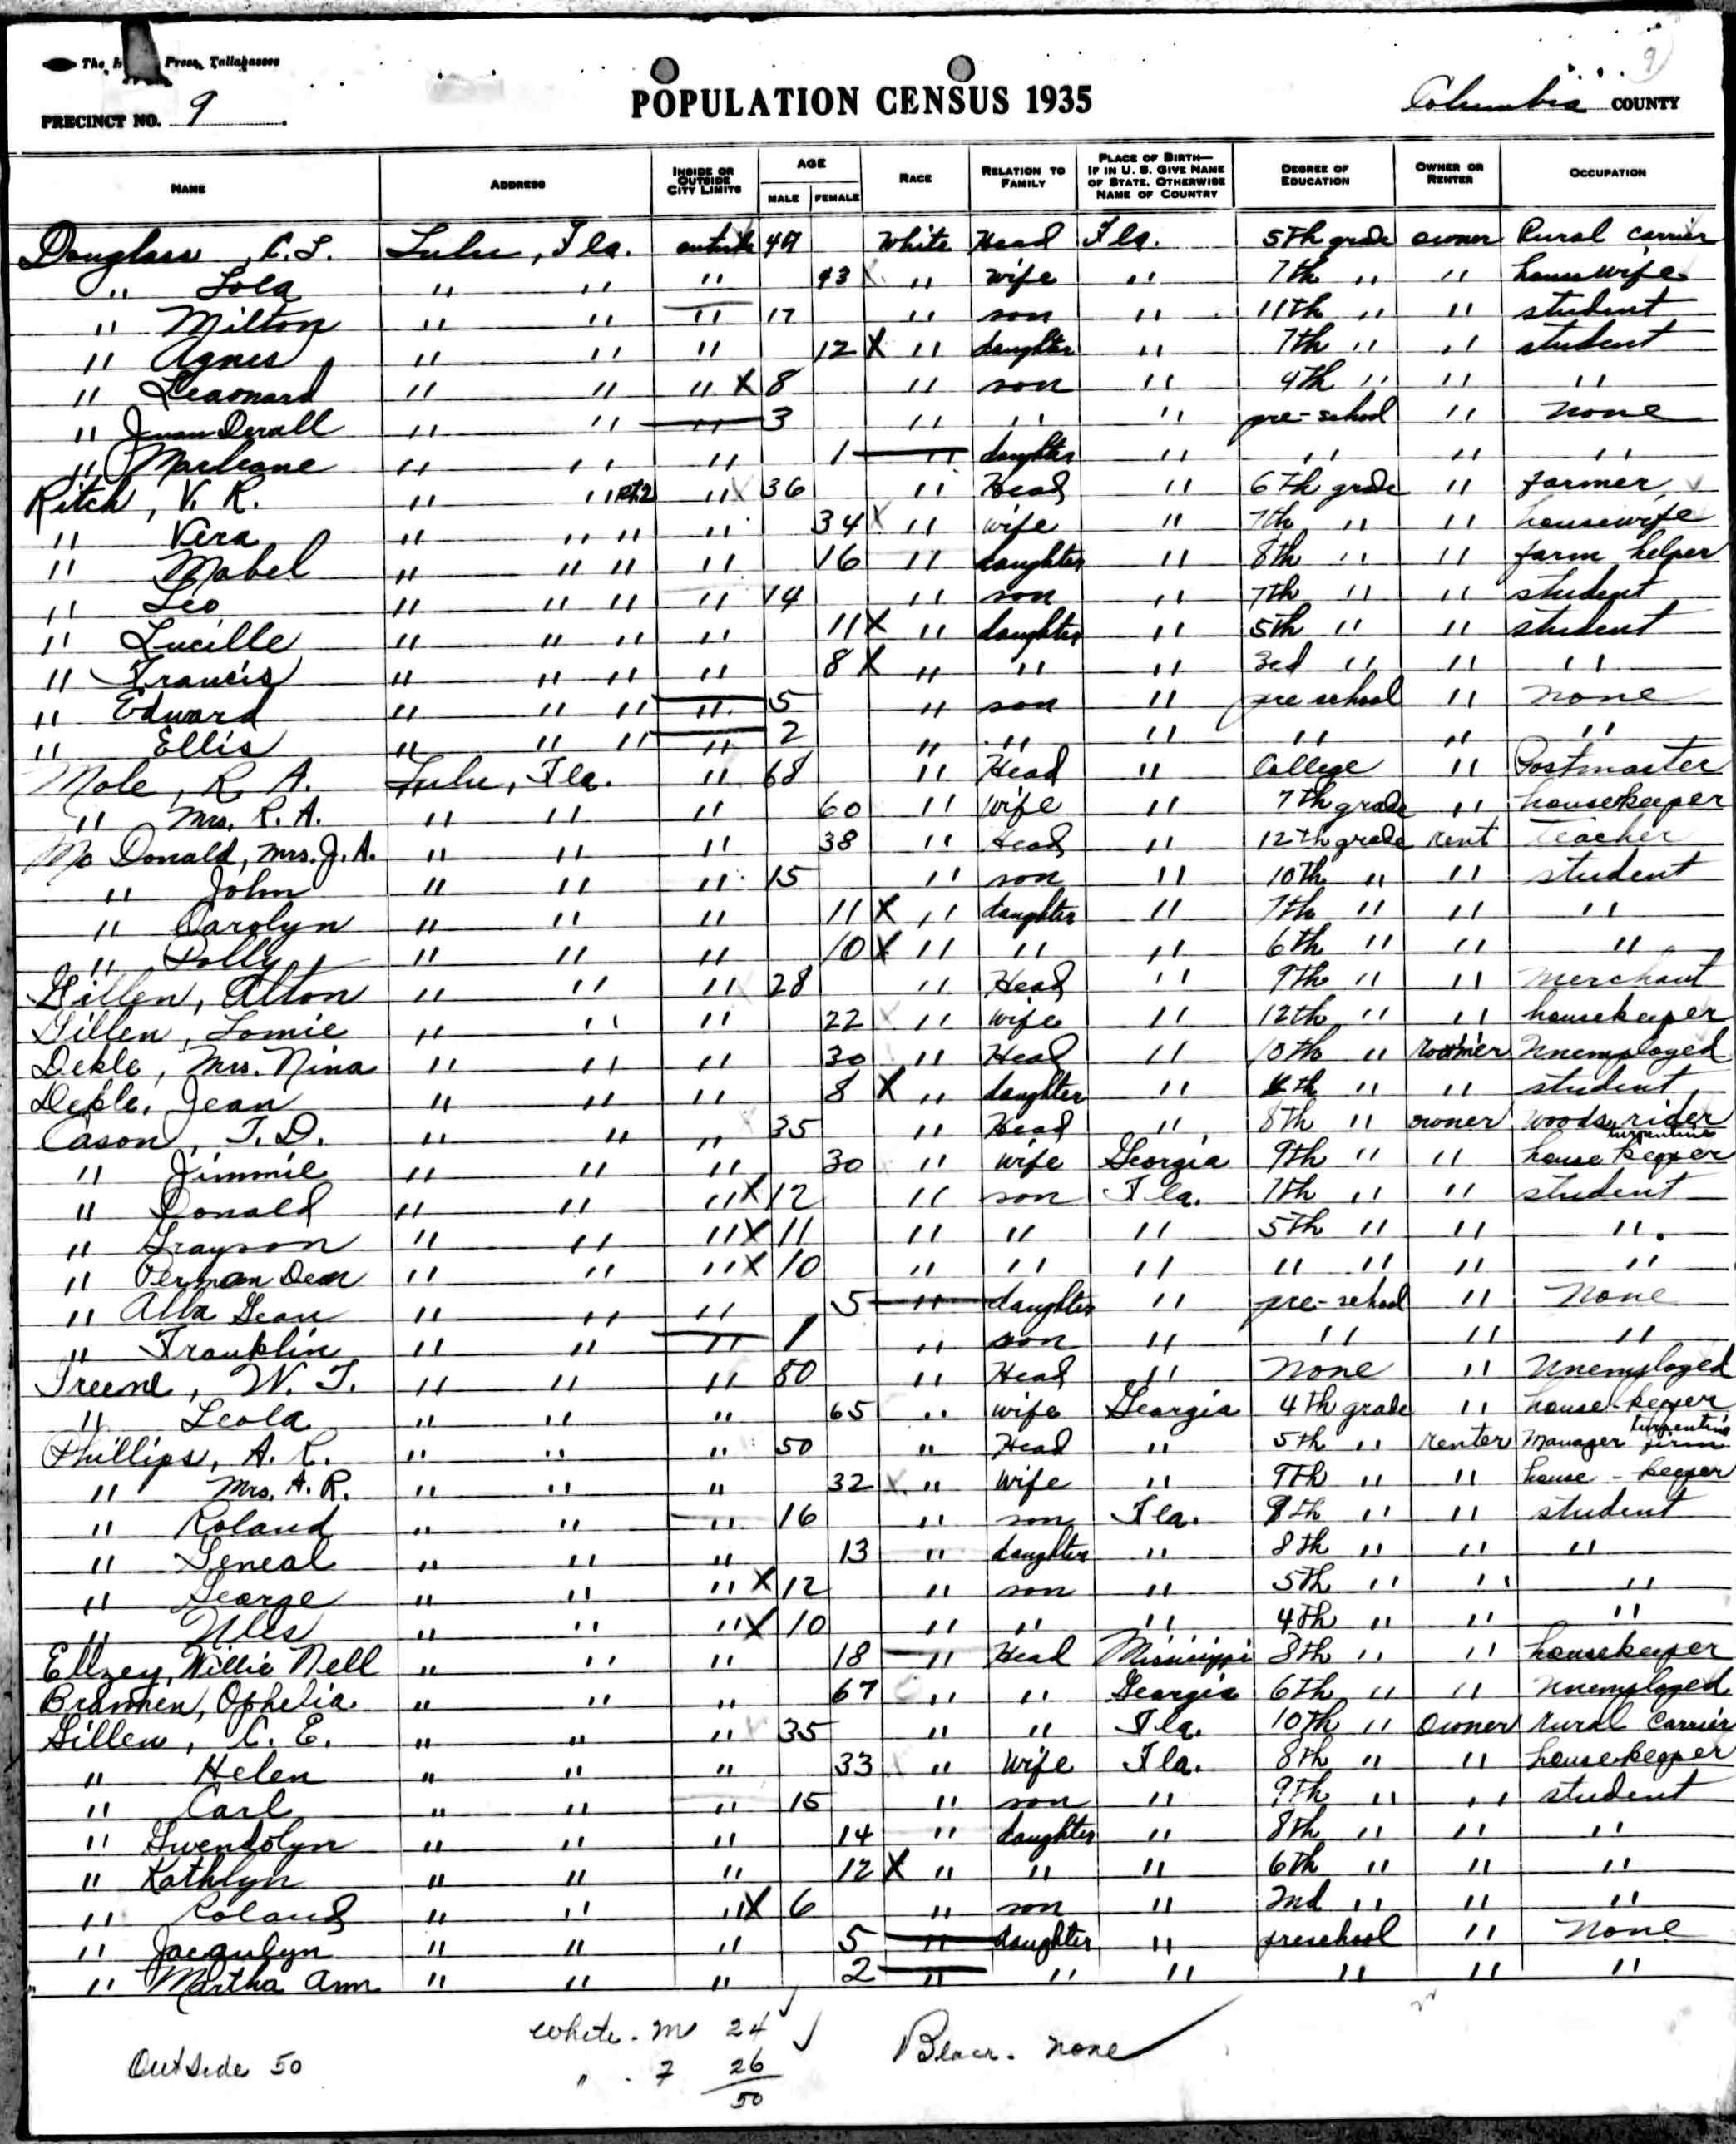 The Press, Tallahassee
9
PRECINCT NO. 9 POPULATION CENSUS 1935 Columbia COUNTY
NAME ADDRESS INSIDE OR OUTSIDE CITY LIMITS AGE MALE FEMALE RACE RELATION TO FAMILY PLACE OF BIRTH—IF IN U. S. GIVE NAME OF STATE, OTHERWISE NAME OF COUNTRY DEGREE OF EDUCATION OWNER OR RENTER OCCUPATION
Douglass, C. L. Lulu, Fla. outside 49 White Head Fla. 5th grade owner Rural carrier
" Lola " " " 43 " wife " 7th " " housewife
" Milton " " " 17 " son " 11th " " student
" Agnes " " " 12 X " daughter " 7th " " student
" Leaonard " " " X 8 " son " 4th " " "
" Juan Derall " " " 3 " " " pre-school " none
" Marleane " " " 1 " daughter " " " "
Ritch, V. R. " " Rt2 " 36 " Head " 6th grade " farmer
" Vera " " " " 34 X " wife " 7th " " housewife
" Mabel " " " " 16 " daughter " 8th " " farm helper
" Leo " " " " 14 " son " 7th " " student
" Lucille " " " " 11 X " daughter " 5th " " student
" Francis " " " " 8 X " " " 3rd " " "
" Edward " " " " 5 " son " pre school " none
" Ellis " " " " 2 " " " " " "
Mole, R. A. Lulu, Fla. " 68 " Head " College " Postmaster
" Mrs. R. A. " " " 60 " wife " 7th grade " housekeeper
Mc Donald, Mrs. J. A. " " " 38 " Head " 12th grade rent teacher
" John " " " 15 " son " 10th " " student
" Carolyn " " " 11 X " daughter " 7th " " "
" Polly " " " 10 X " " " 6th " " "
Gillen, Alton " " " 28 " Head " 9th " " merchant
Gillen, Lomie " " " 22 X " wife " 12th " " housekeeper
Dekle, Mrs. Nina " " " 30 " Head " 10th " Unemployed
Dekle, Jean " " " 8 X " daughter " 4th " " student
Cason, T. D. " " " 35 " Head " 8th " owner woods rider turpentine
" Jimmie " " " 30 " wife Georgia 9th " " house keeper
" Donald " " " X 12 " son Fla. 7th " " student
" Grayson " " " X 11 " " " 5th " " "
" Verman Dean " " " X 10 " " " " " " "
" Alba Gean " " " 5 " daughter " pre-school " none
" Franklin " " " 1 " son " " " "
Treene, W. T. " " " 80 " Head " none " Unemployed
" Leola " " " 65 " wife Georgia 4th grade " house-keeper
Phillips, A. R. " " " 50 " Head " 5th " renter Manager turpentine firm
" Mrs. A. R. " " " 32 X " wife " 9th " " house-keeper
" Roland " " " 16 " son Fla. 8th " " student
" Geneal " " " 13 " daughter " 8th " " "
" George " " " X 12 " son " 5th " " "
" Niles " " " X 10 " " " 4th " " "
Ellzey, Willie Nell " " " 18 " Head Mississippi 8th " " housekeeper
Brannen, Ophelia " " " 67 " " Georgia 6th " " Unemployed
Gillen, C. E. " " " 35 " " Fla. 10th " owner rural carrier
" Helen " " " 33 " wife Fla. 8th " " housekeeper
" Carl " " " 15 " son " 9th " " student
" Gwendolyn " " " 14 " daughter " 8th " " "
" Kathlyn " " " 12 X " " " 6th " " "
" Roland " " " X 6 " son " 2nd " " "
" Jacqulyn " " " 5 " daughter " preschool " none
" Martha Ann " " " 2 " " " " " "
White. M 24
Outside 50 " . F 26 Black. none
50